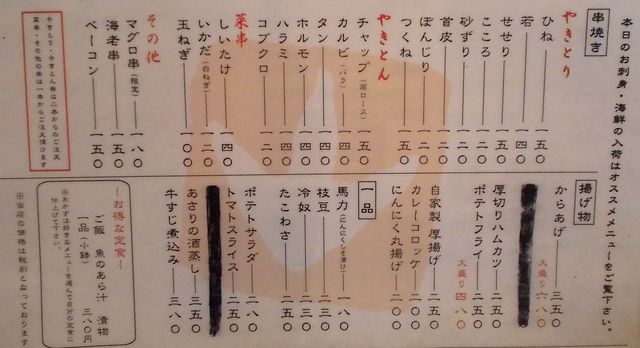 本日のお刺身・海鮮の入荷はオススメメニューをご覧下さい。
串焼き
やきとり
ひね 一五〇
若 一四〇
せせり 一五〇
こころ 一二〇
砂ずり 一二〇
首皮 一二〇
ぼんじり 一二〇
つくね 一五〇
やきとん
チャップ(肩ロース) 一五〇
カルビ(バラ) 一四〇
タン 一四〇
ホルモン 一四〇
ハラミ 一四〇
コブクロ 一二〇
菜串
しいたけ 一四〇
いかだ(白ねぎ) 一二〇
玉ねぎ 一〇〇
その他
マグロ串(限定) 一八〇
海老串 一五〇
ベーコン 一五〇
やきとり・やきとん串は二本からのご注文
菜串・その他の串は一本からご注文頂けます
揚げ物
からあげ 三五〇
大盛り 六八〇
厚切りハムカツ 二五〇
ポテトフライ 二五〇
大盛り 四八〇
自家製 厚揚げ 二五〇
カレーコロッケ 二〇〇
にんにく丸揚げ 二〇〇
一品
馬力(にんにくしそ漬け) 一八〇
枝豆 二五〇
冷奴 二五〇
たこわさ 二八〇
ポテサラダ 二八〇
トマトスライス 二五〇
あさりの酒蒸し 三五〇
牛すじ煮込み 三八〇
―お得な定食―
ご飯 魚のあら汁 漬物
一品(小鉢) 三八〇円
※おかずは好きなメニューを選んで自分の定食に
仕上げて下さい。
※当店の価格は税別となっております